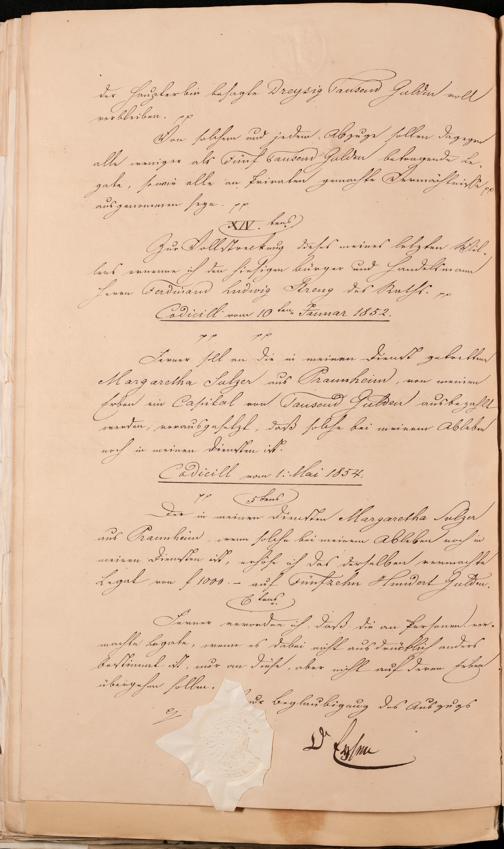 der Haupterbin besagte Dreysig Tausend Gulden voll
verbleiben. pp
Von solchem und jedem Abzuge sollen dagegen
alle weniger als Fünf Tausend Gulden betragende Le-
gate, sowie alle an Privaten gemachte Vermächtnisse pp
ausgenommen seyn. pp
XIV. tens
Zur Vollstreckung dieses meines letzten Wil-
lens ernenne ich den hiesigen Bürger und Handelsmann
Herrn Ferdinand Ludwig des Raths. pp
Codicill vom 10ten Januar 1852.
pp pp
Ferner soll an die in meinen Dienst getretene
Margaretha Sulzer aus Praunheim, von meinen
Erben ein Capital von Tausend Gulden ausbezahlt
werden, vorausgesetzt, daß solche bei meinem Ableben
noch in meinen Diensten ist.
Codicill vom 1. Mai 1854.
pp 5tens
Der in meinen Diensten Margaretha Sulzer
aus Praunheim, wenn solche bei meinem Ableben noch in
meinen Diensten ist, erhöhe ich das derselben vermachte
Legat von f 1000.- auf Fünfzehn Hundert Gulden.
6tens
Ferner verordne ich, daß die an Personen ver-
machte Legate, wenn es dabei nicht ausdrücklich anders
bestimmt ist, nur an diese, aber nicht auf deren Erben
übergehen sollen.
Zur Beglaubigung des Auszugs
Dr